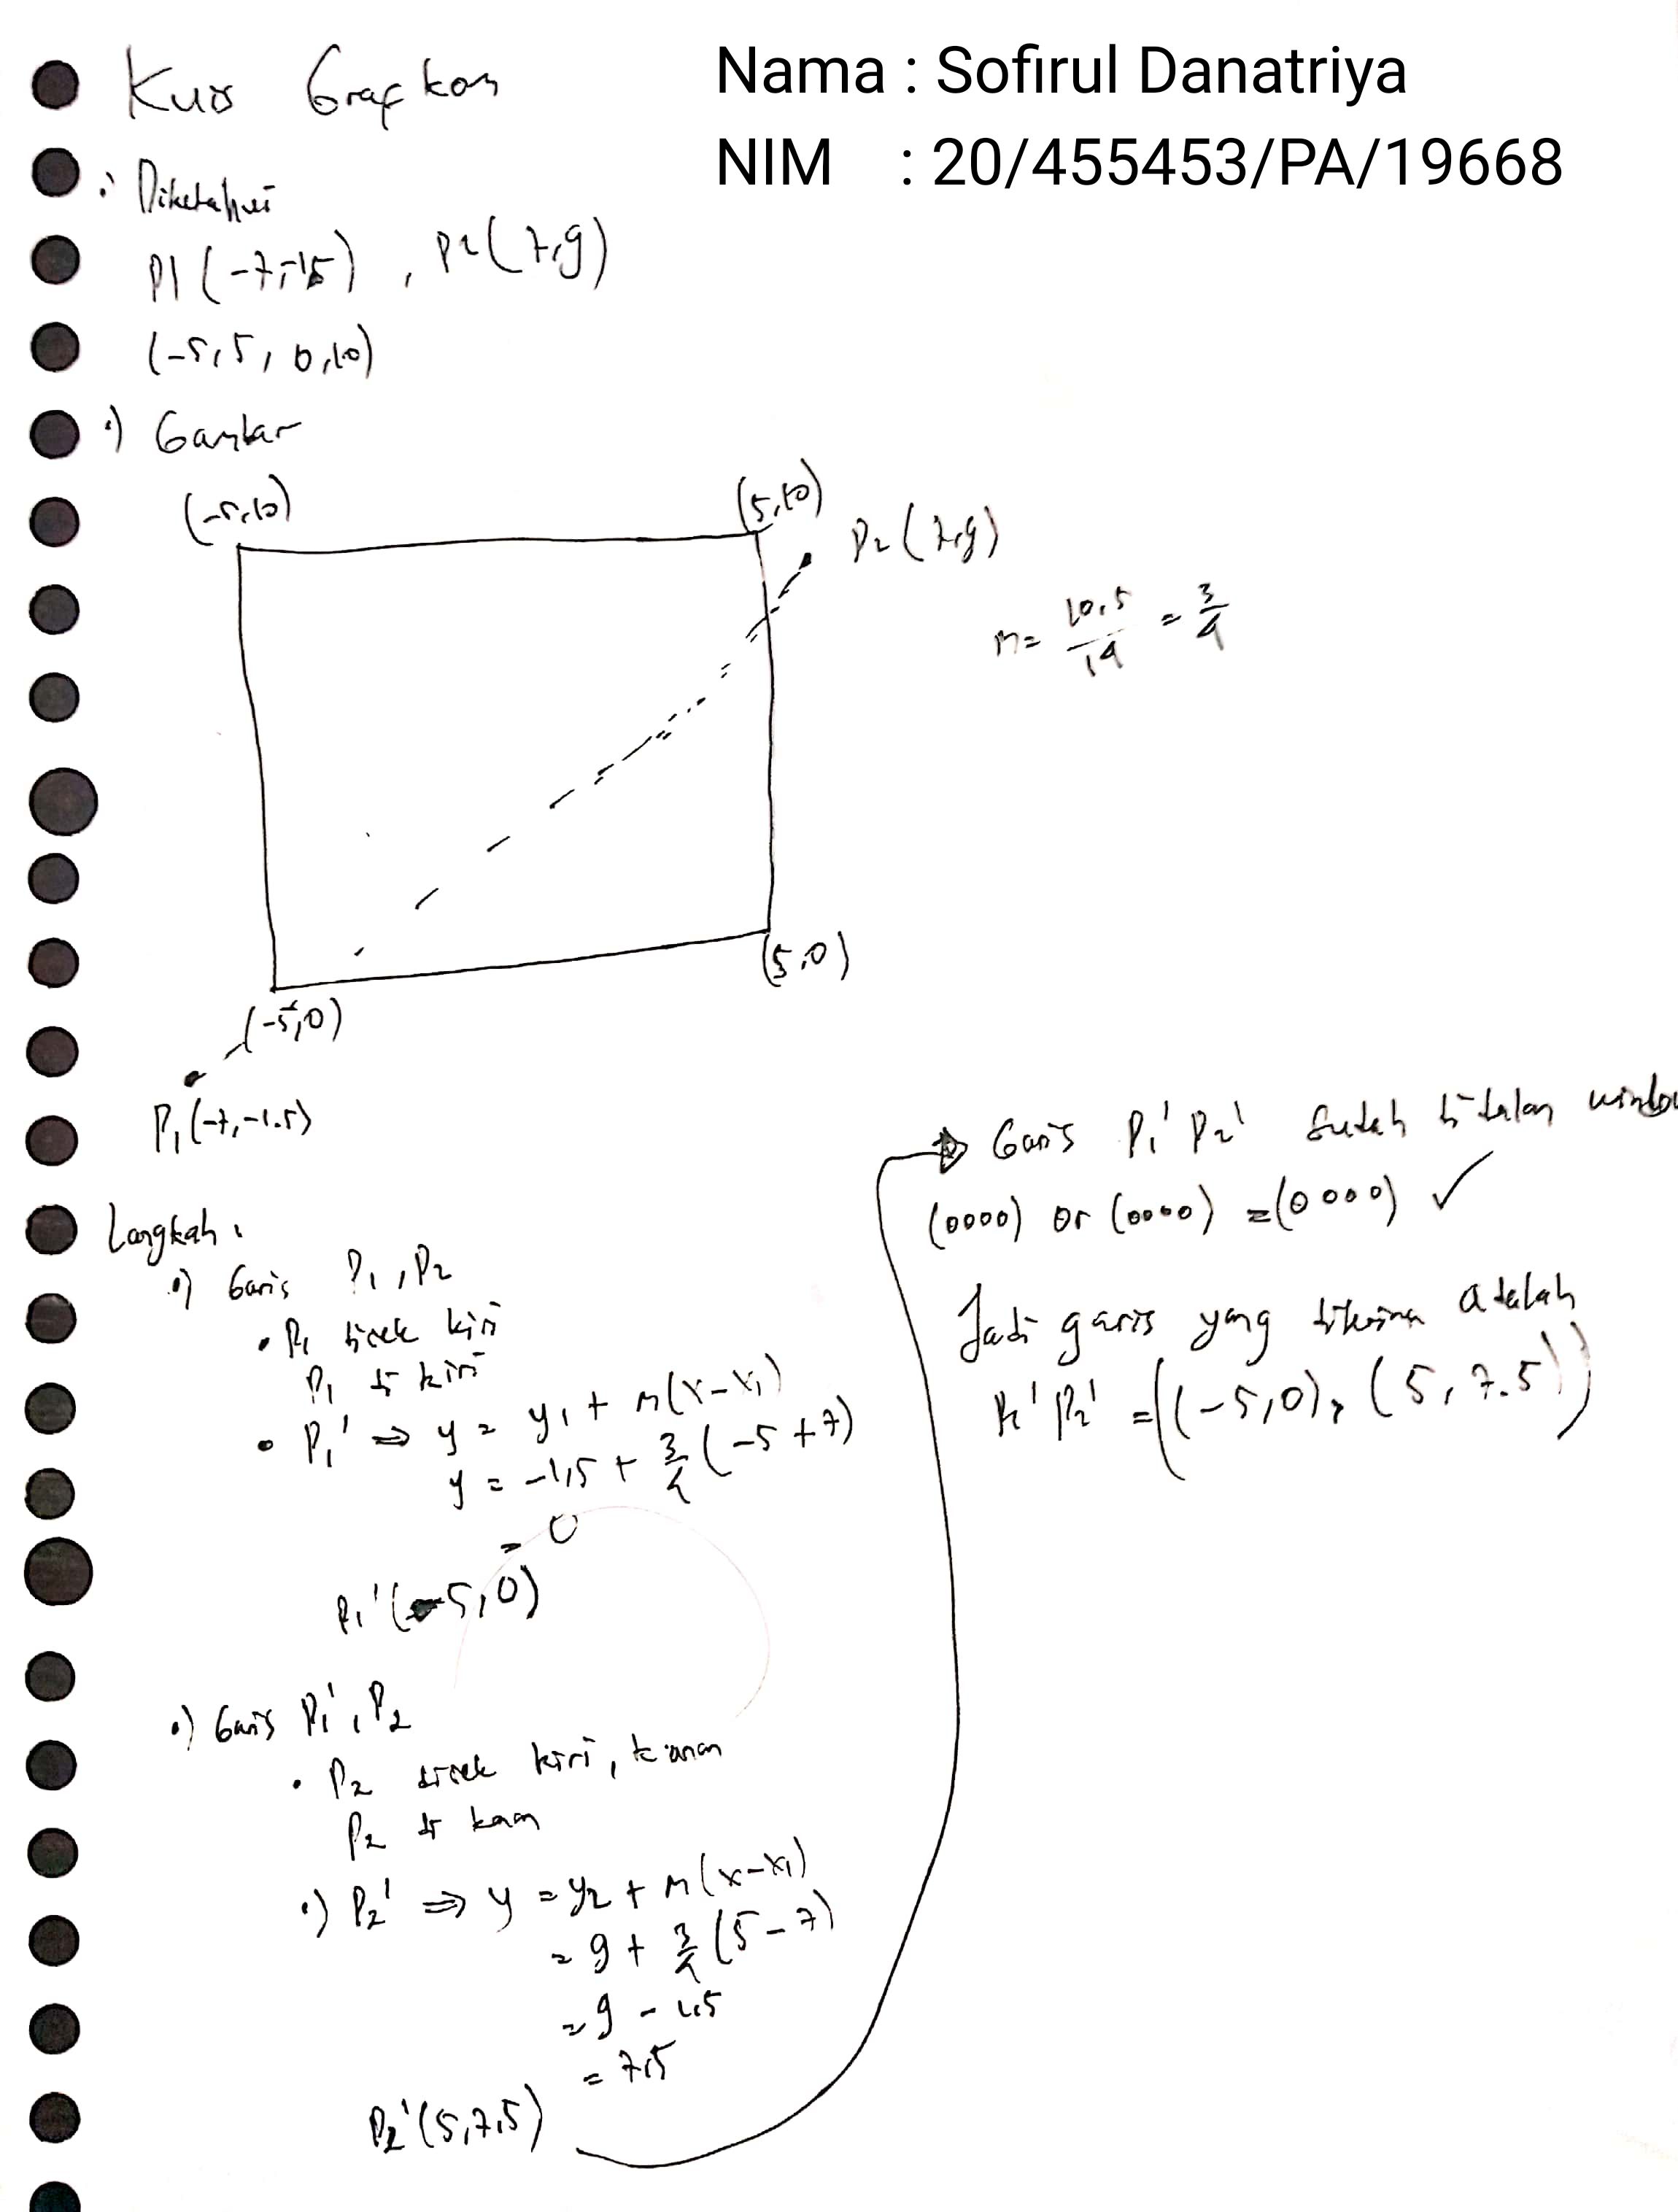 Kuis Grafkom
Nama : Sofirul Danatriya
NIM : 20/455453/PA/19668
•) Diketahui
P1 (-7,-1.5) , P2 (7,9)
(-5,5, 0,10)
•) Gambar
(-5,10)
(5,10)
P2 (7,9)
m = 10,5/14 = 3/4
(5,0)
(-5,0)
P1 (-7,-1.5)
Langkah :
•) Garis P1, P2
• P1 dicek kiri
P1 di kiri
• P1' ⇒ y = y1 + m(x-x1)
y = -1,5 + 3/4 (-5+7)
= 0
P1' (-5,0)
•) Garis P1', P2
• P2 dicek kiri, kanan
P2 di kanan
•) P2' ⇒ y = y2 + m(x-x1)
= 9 + 3/4 (5-7)
= 9 - 1,5
= 7,5
P2' (5,7,5)
→ Garis P1' P2' sudah di dalam windo
(0000) or (0000) = (0000) ✓
Jadi garis yang diterima adalah
P1' P2' = ((-5,0), (5, 7.5))